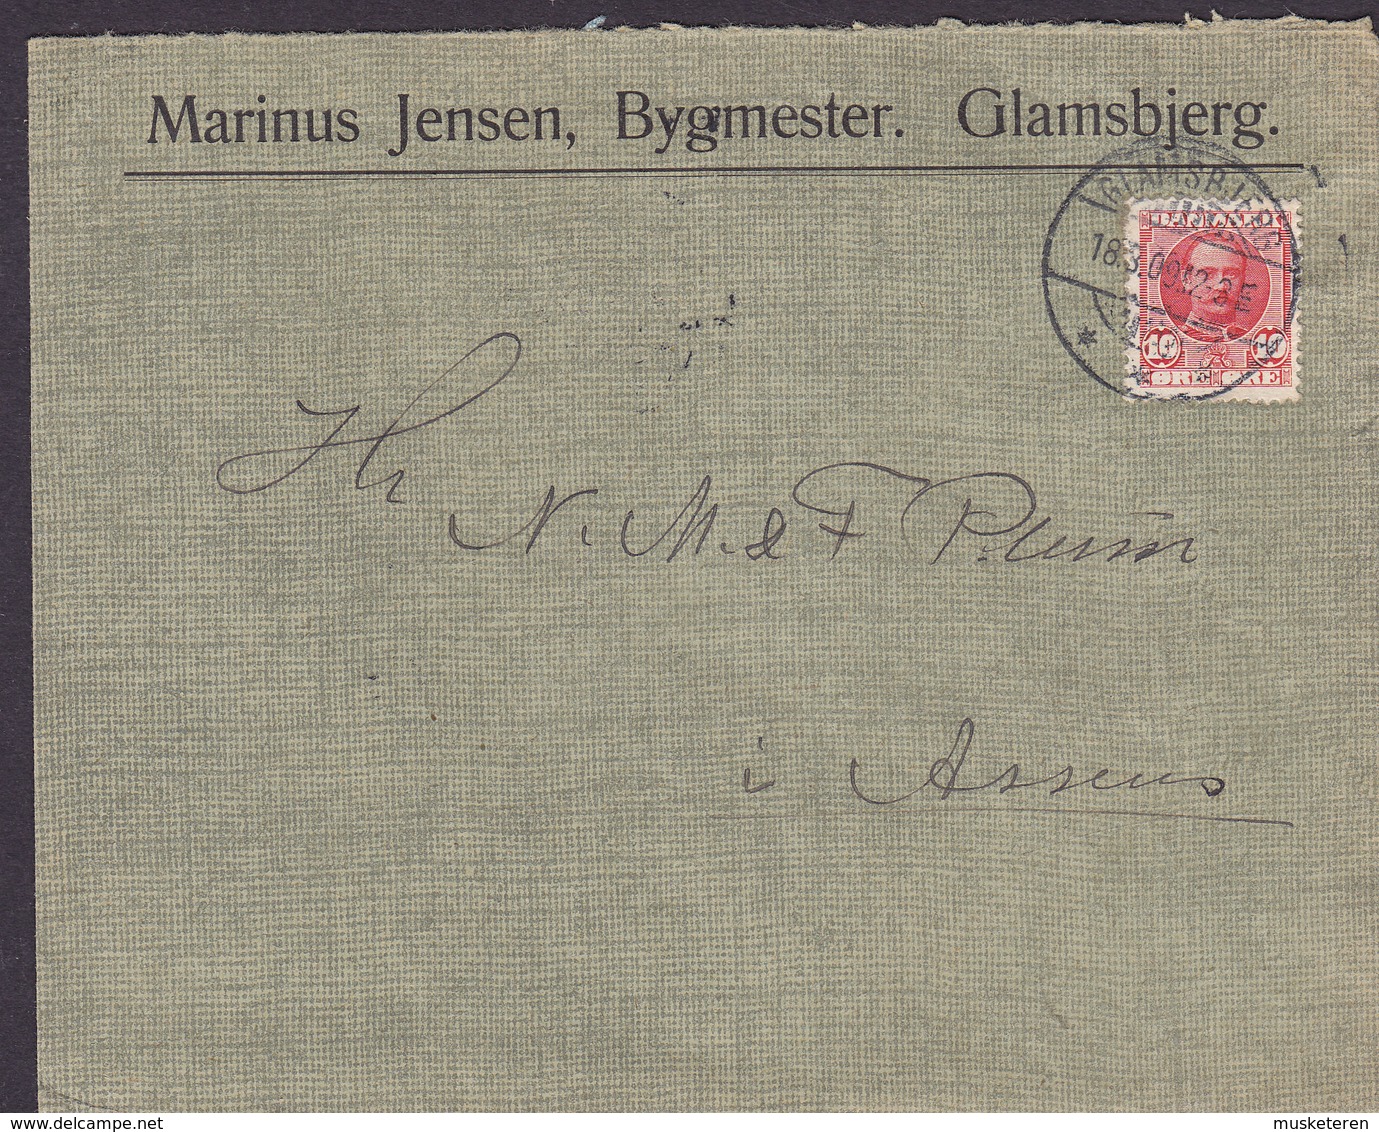 Marinus Jensen, Bygmester. Glamsbjerg.
GLAMSBJERG
18.3.09.12-3 E
DANMARK
10 10
ØRE ØRE
Hr
N. M. & F Plum
i Assens
delcampe.net
musketeren